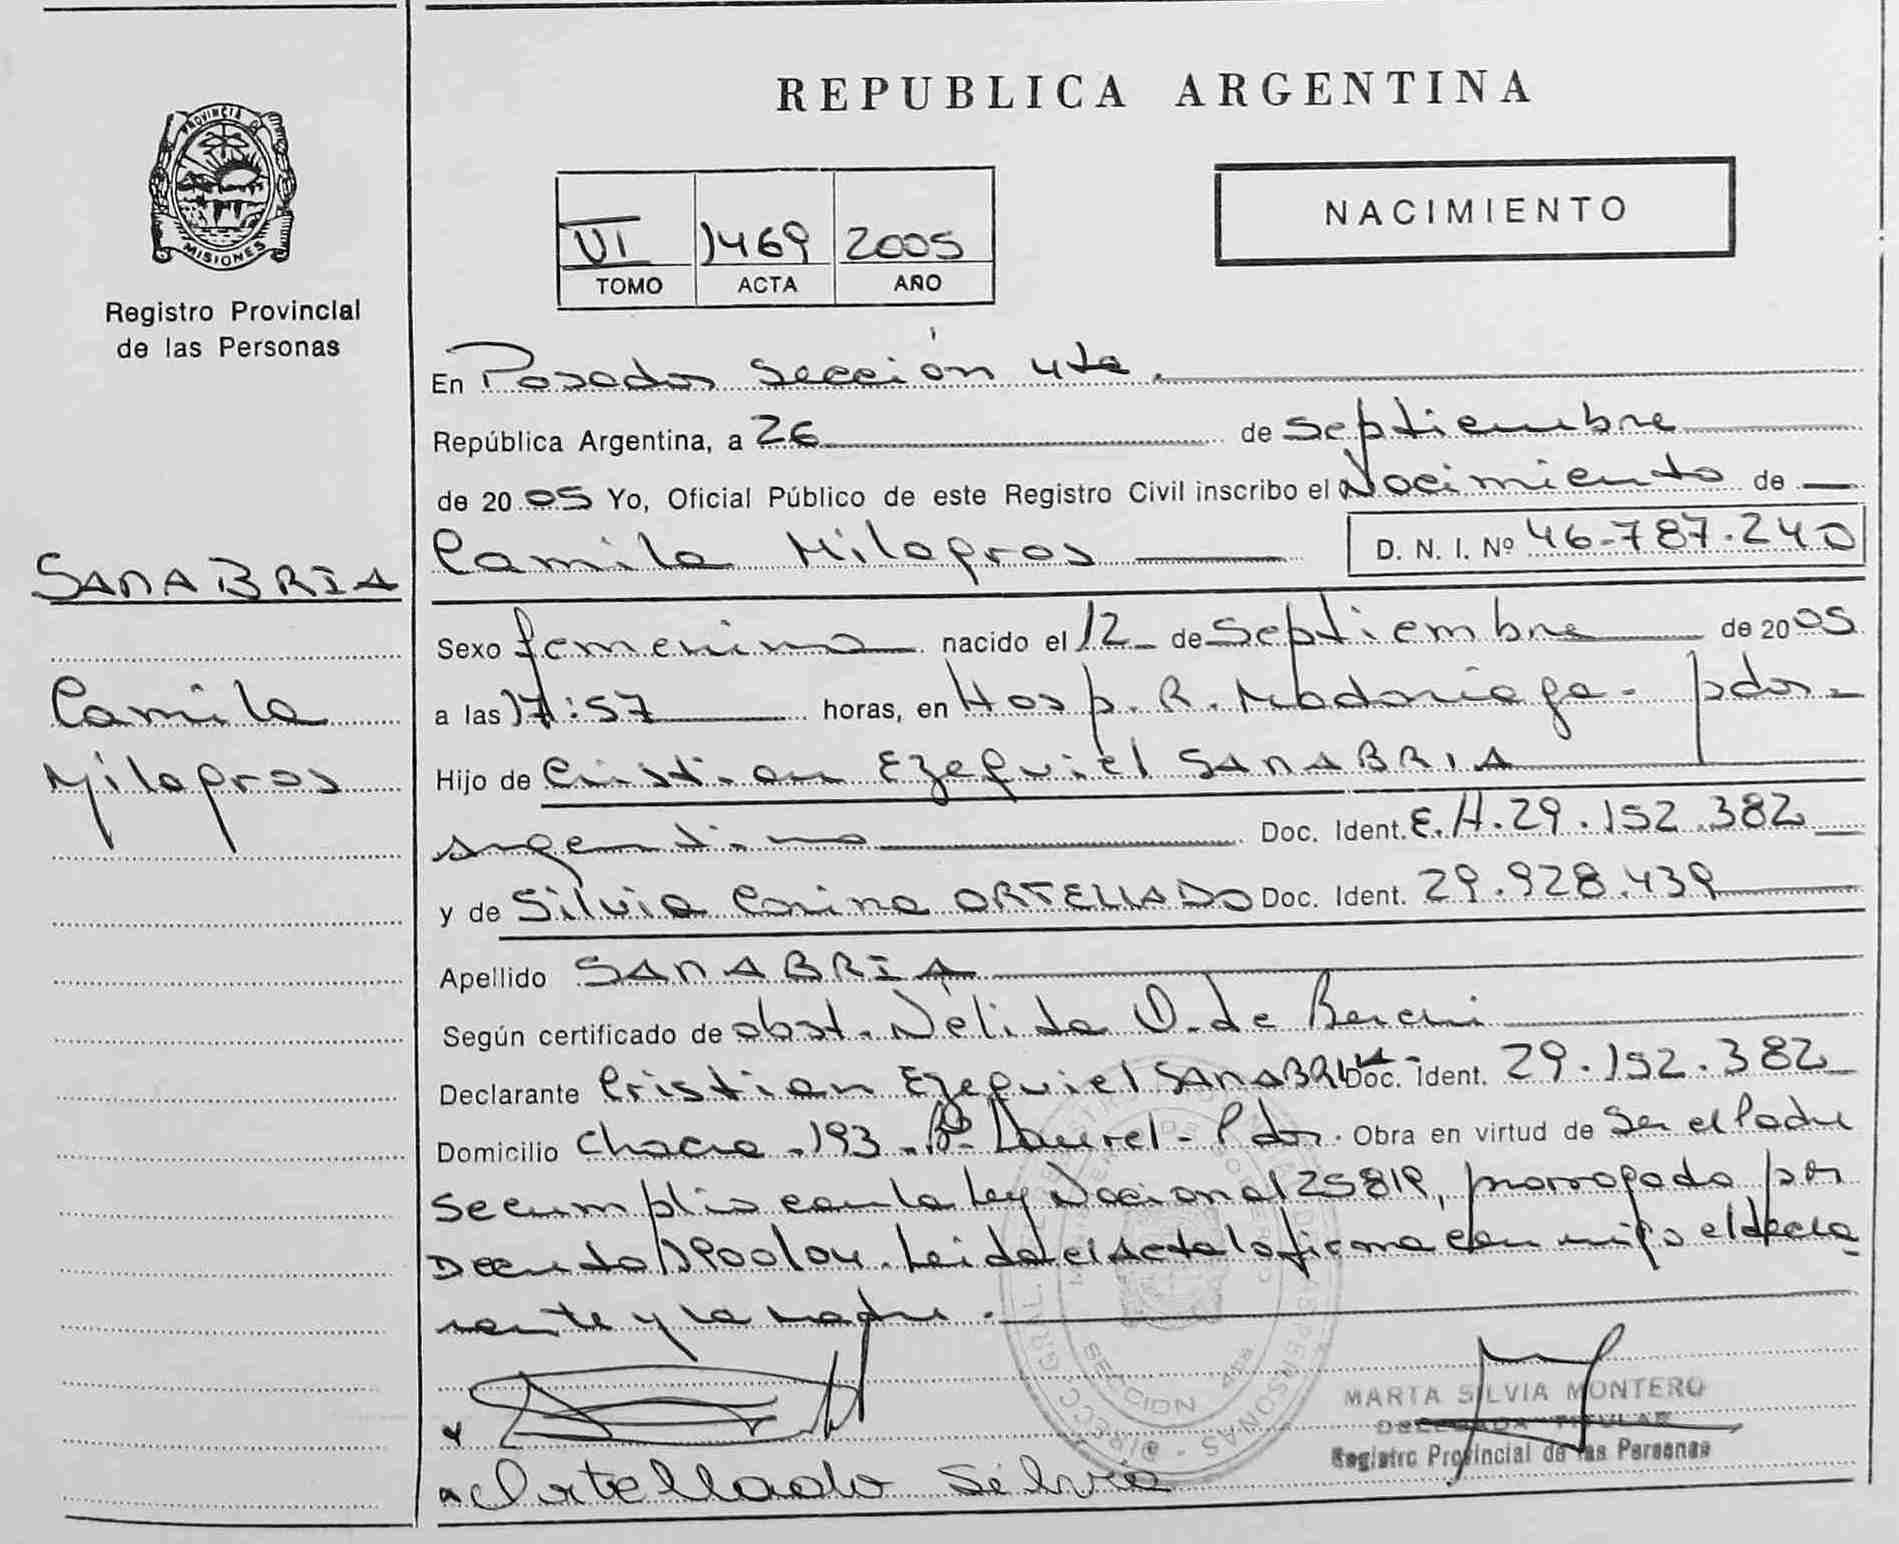 REPUBLICA ARGENTINA
PROVINCIA DE
MISIONES
Registro Provincial
de las Personas
VI 1469 2005
TOMO ACTA AÑO
NACIMIENTO
En Posadas Sección 4ta.
República Argentina, a 26 de Septiembre
de 2005 Yo, Oficial Público de este Registro Civil inscribo el Nacimiento de
Camila Milagros D. N. I. Nº 46.787.240
SANABRIA
Camila
Milagros
Sexo femenino nacido el 12 de Septiembre de 2005
a las 17:57 horas, en Hosp. R. Madariaga - pdas -
Hijo de Cristian Ezequiel SANABRIA
argentino Doc. Ident. 29.152.382
y de Silvia Corina ORTELLADO Doc. Ident. 29.928.439
Apellido SANABRIA
Según certificado de obst. Nélida O. de
Declarante Cristian Ezequiel SANABRIA Doc. Ident. 29.152.382
Domicilio Chacra - 193 - Bº Laurel - Pdas. Obra en virtud de Ser el Padre
Se cumplio con la Ley Nacional 25819, prorrogado por
Decreto 1900/04. Leida el Acta la firma con migo el decla
rante y la madre.
SECCION 4ta
MARTA SILVIA MONTERO
DELEGADA TITULAR
Registro Provincial de las Personas
Ortellado Silvia